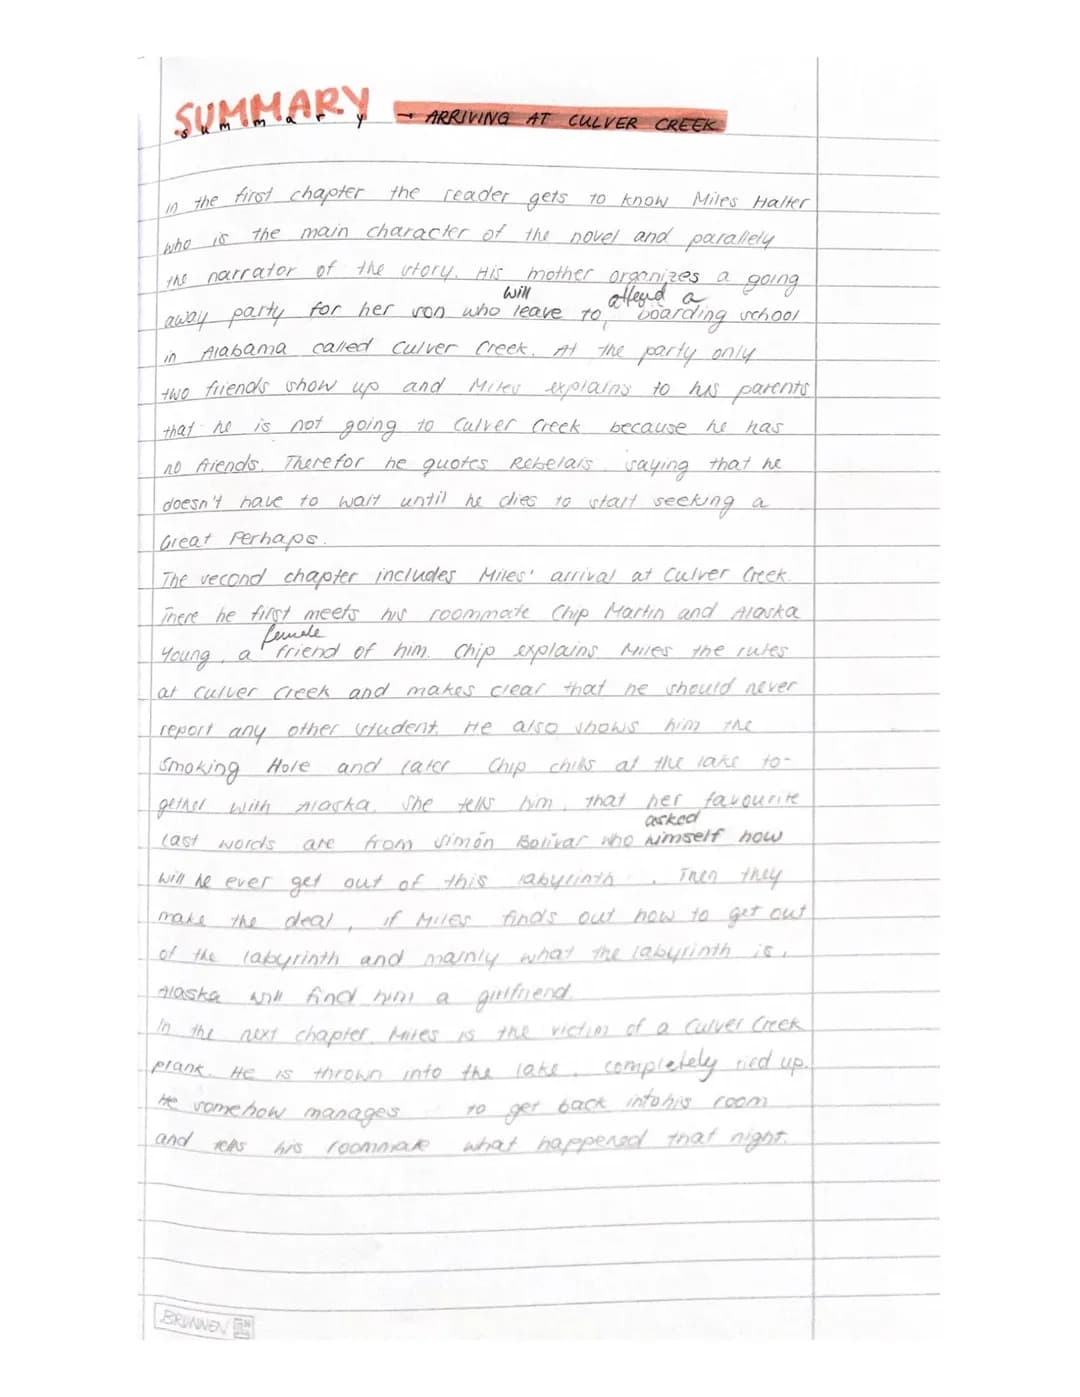 SUMMARY
summary
→ ARRIVING AT CULVER CREEK
In the first chapter the reader gets to know Miles Halter
who is the main character of the novel and parallely
the narrator of the story. His mother organizes a going
will attend a
away party for her son who leave to boarding school
in Alabama called Culver Creek. At the party only
two friends show up and Miles explains to his parents
that he is not going to Culver Creek because he has
no friends. Therefor he quotes Rebelais saying that he
doesn't have to wait until he dies to start seeking a
Great Perhaps.
The second chapter includes Miles' arrival at Culver Creek.
There he first meets his roommate Chip Martin and Alaska
female
Young, a friend of him. Chip explains Miles the rules
at Culver Creek and makes clear that he should never
report any other student. He also shows him the
Smoking Hole and later Chip chills at the lake to-
gether with Alaska. She tells him, that her favourite
asked
last words are from Simón Bolívar who himself how
will he ever get out of this labyrinth. Then they
make the deal, if Miles finds out how to get out
of the labyrinth and mainly what the labyrinth is,
Alaska will find him a girlfriend
In the next chapter, Miles is the victim of a Culver Creek
prank. He is thrown into the lake, completely tied up.
He somehow manages to get back into his room
and tells his roommate what happened that night.
BRUNNEN